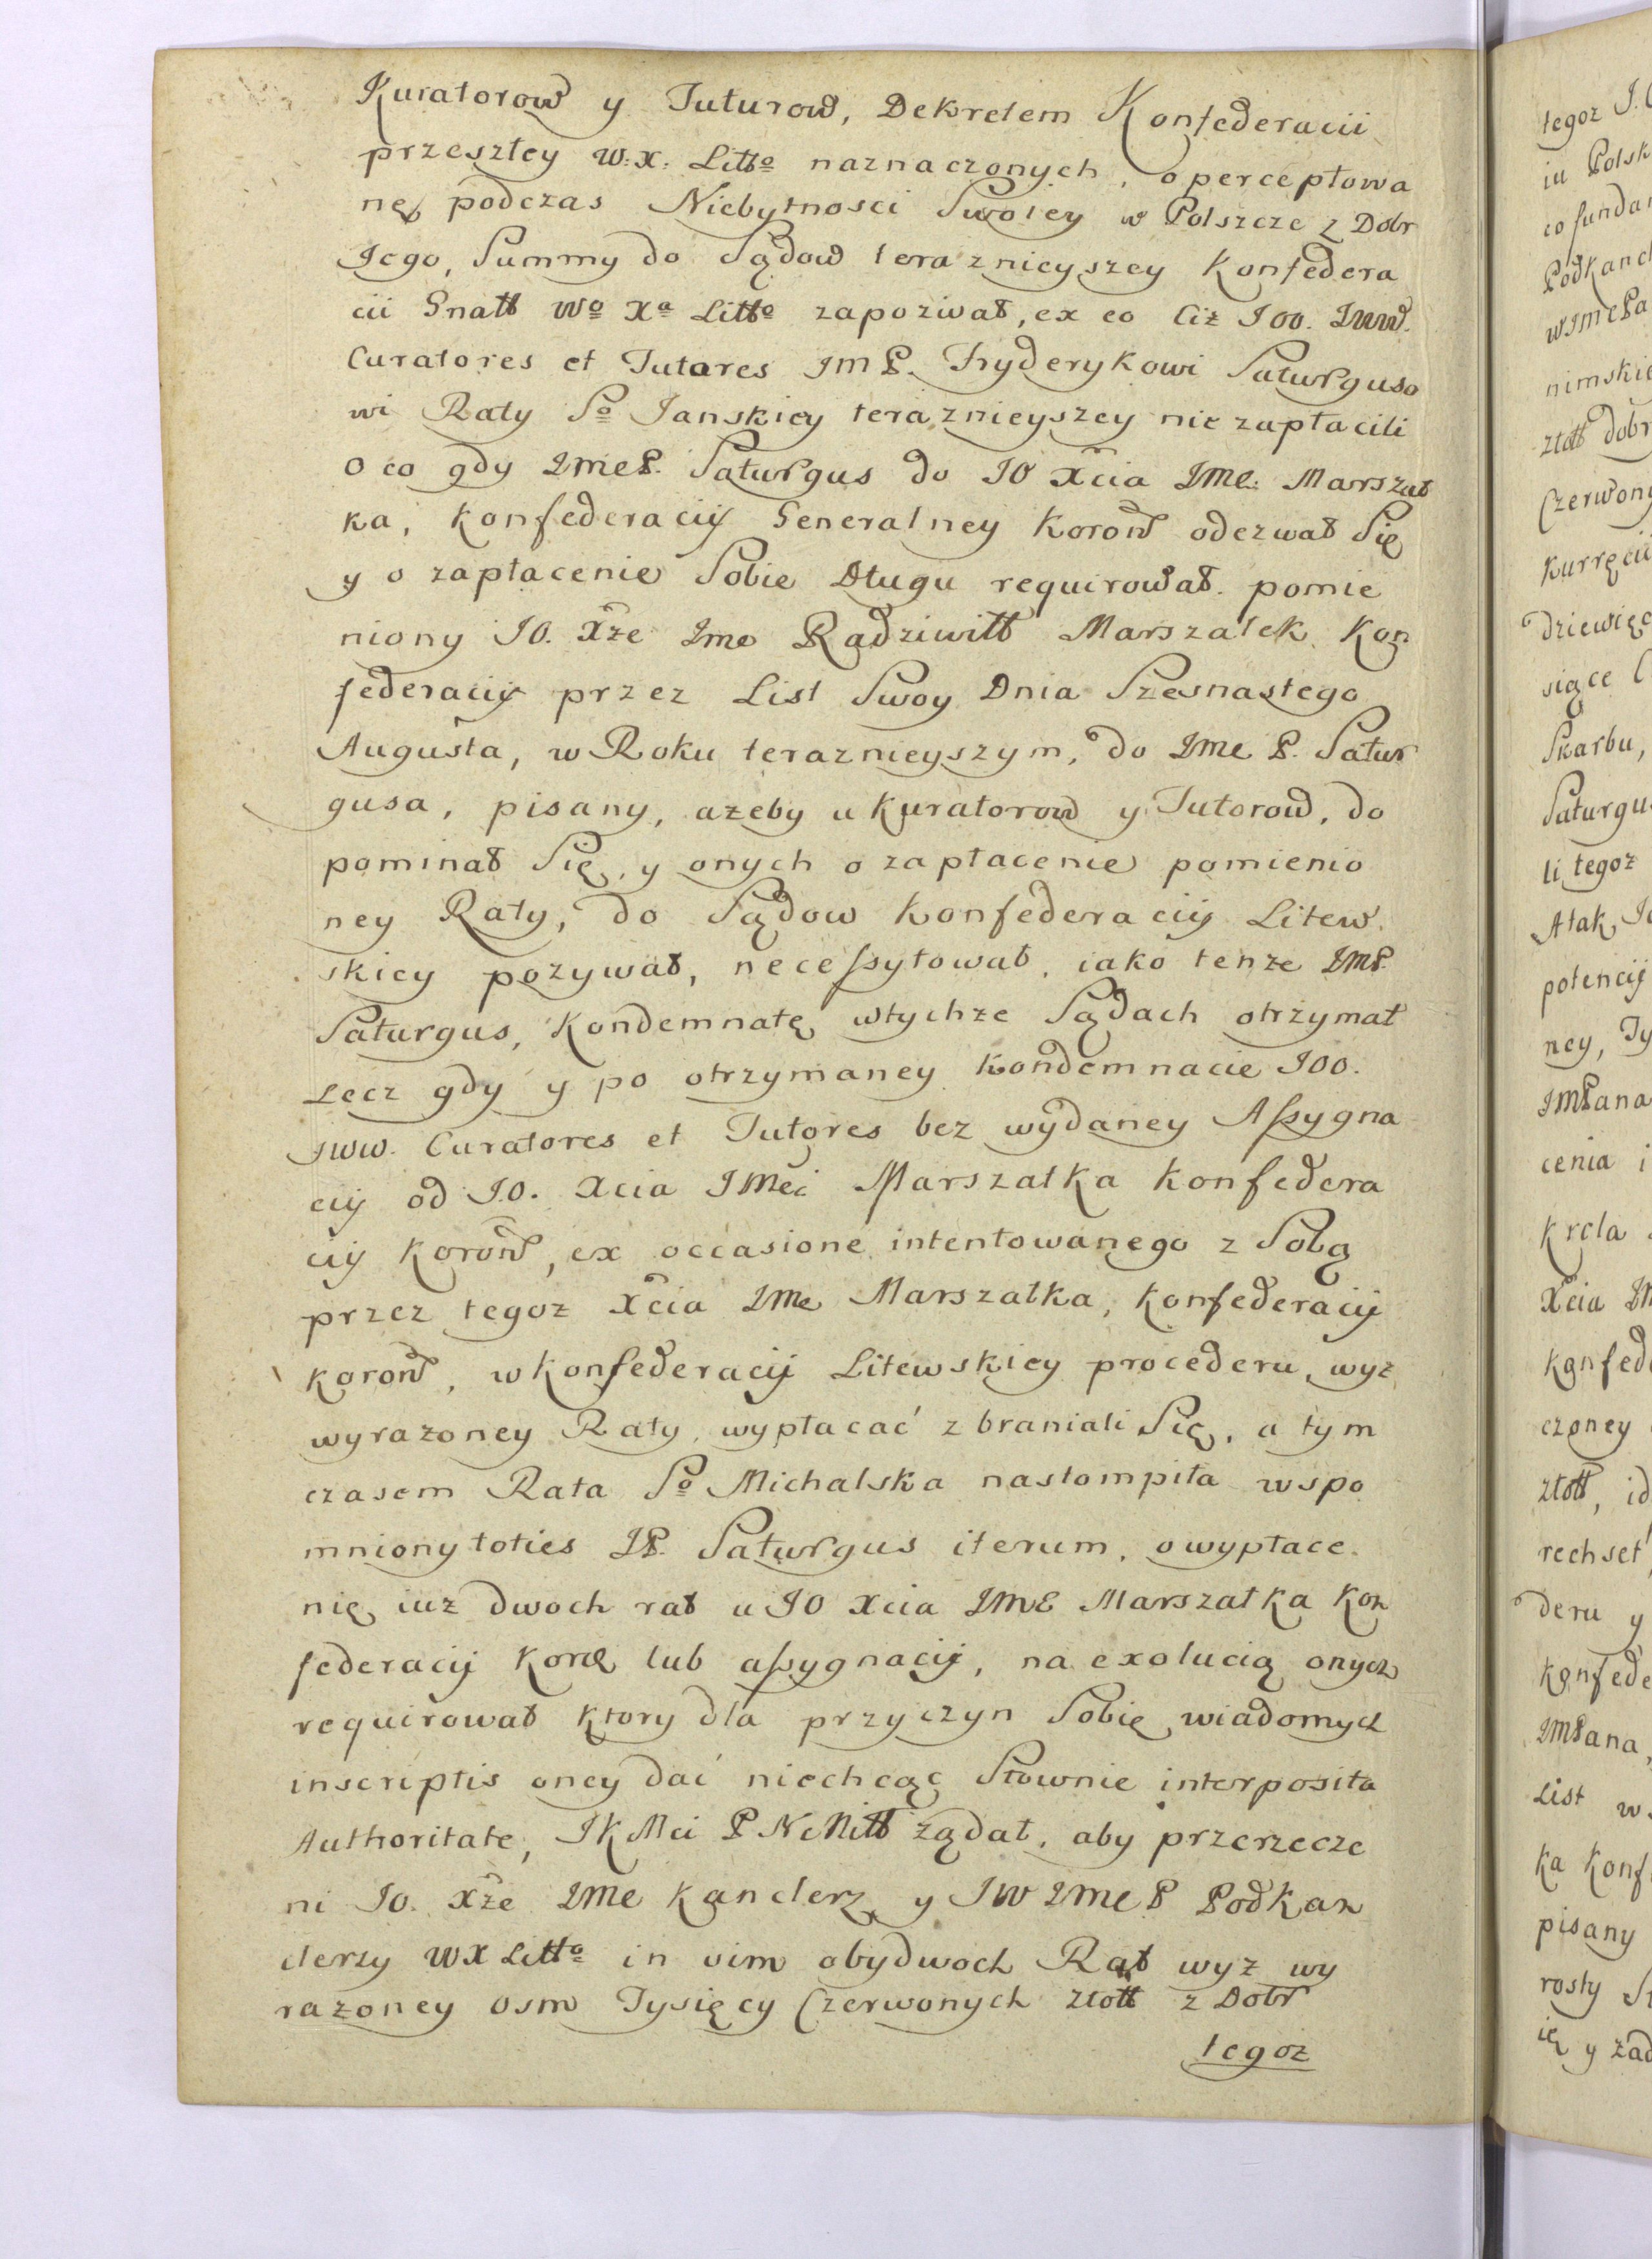 Kuratorow y Tuturow, Dekretem Konfederacii
przeszłey W: X: Litto naznaczonych, o perceptowa
nę podczas Niebytnosci Swoiey w Polszcze z Dobr
Iego, Summy do Sądow teraznieyszey Konfedera
cii Gnałł Wo Xa Litto zapozwał, ex eo Ciż Ioo. Jww.
Curatores et Tutores JmP. Fryderykowi Saturguso
wi Raty So Ianskiey teraznieyszey nie zapłacili
O co gdy JmeP. Saturgus do IO Xcia JMe: Marszał
ka, Konfederacij Generalney Koron odezwał Się
y o zapłacenie Sobie Długu requirował. pomie
niony IO. Xże Jme Radziwiłł Marszałek Kon
federacij przez List Swoy Dnia Szesnastego
Augusta, w Roku teraznieyszym, do JMe P. Satur
gusa, pisany, azeby u Kuratorow y Tutorow, do
pominał Się, y onych o zapłacenie pomienio
ney Raty, do Sądow Konfederacij Litew.
skiey pozywał, necessytował, iako tenże JmP.
Saturgus, Kondemnatę w tychże Sądach otrzymał
Lecz gdy y po otrzymaney Kondemnacie IOO.
JWW. Curatores et Tutores bez wydaney Assygna
cij od I.O. Xcia JMci Marszałka Konfedera
cij Koron, ex occasione intentowanego z Sobą
przez tegoz Xcia JMe Marszałka, Konfederacij
Koron, w Konfederacij Litewskiey procederu, wyz
wyrazoney Raty, wypłacać zbraniali Się, a tym
czasem Rata So Michalska nastompiła wspo
mniony toties JP. Saturgus iterum, o wypłace
nię iuz dwoch rat u IO Xcia JME Marszałka Kon
federacij Koro lub assygnacij, na exolucią onych
requirował Ktory dla przyczyn Sobie wiadomych
inscriptis oney dać niechcąc Słownie interposita
Authoritate, JKMci P N Miłł ządał, aby przerzecze
ni Io. Xże JMe Kanclerz y JW JMe P PodKan
clerzy WX Litto in vim obydwoch Rat wyz wy
razoney Osm Tysięcy Czerwonych złott z Dobr
tegoz
tegoz J.
iu Polsk
co funda
Podkanc
W JmePa
nimskie
złott dobr
Czerwony
Kurręcii
dziewięc
siące
Skarbu,
Saturgu
li tegoz
A tak
potencij
ney, Ty
JMPana
cenia i
Krola
Xcia JM
Konfed
czoney
złott, id
rechset
deru y
Konfede
JMPana,
List w
ka Konf
pisany
rosty S
ię y ząd